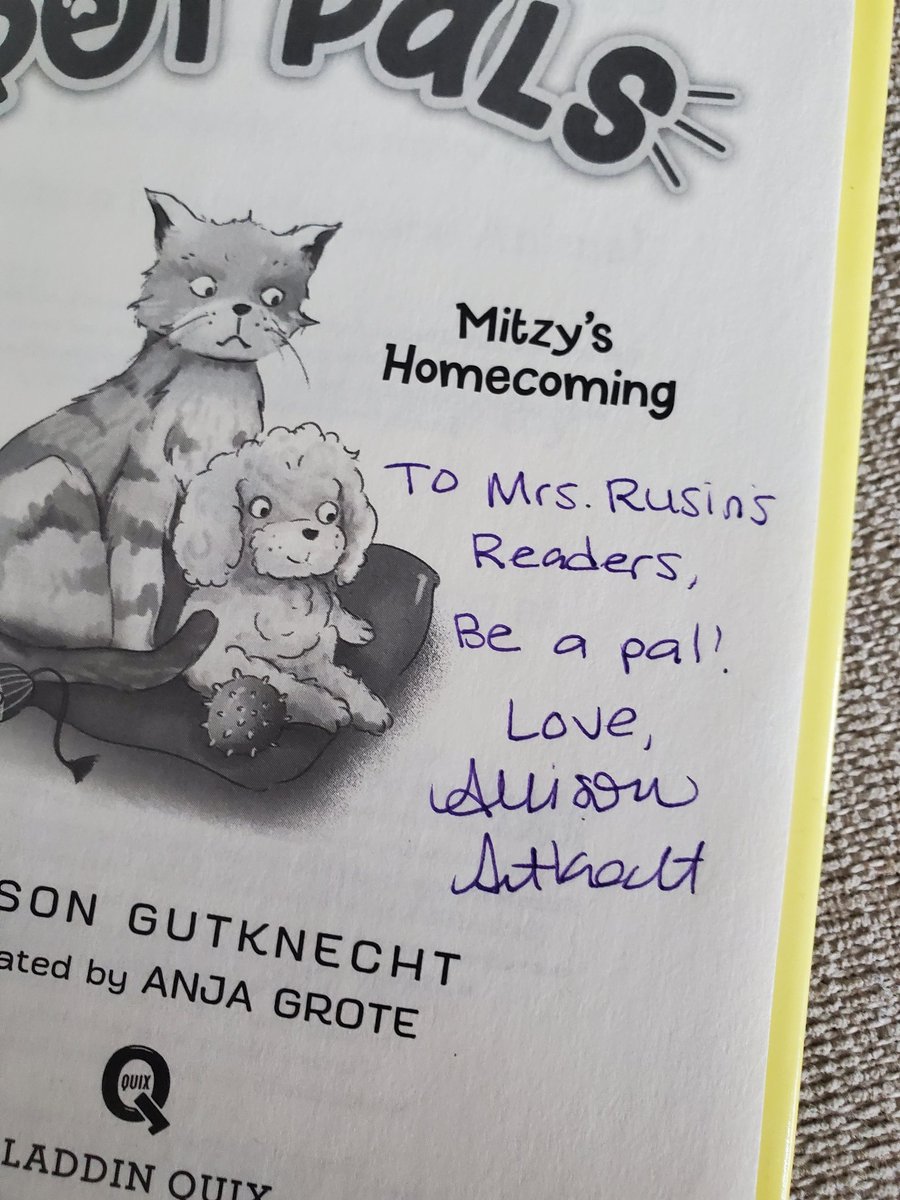 PALS
Mitzy's
Homecoming
To Mrs. Rusin's
Readers,
Be a pal!
Love,
Allison
Gutknecht
SON GUTKNECHT
ated by ANJA GROTE
QUIX
LADDIN QUIX